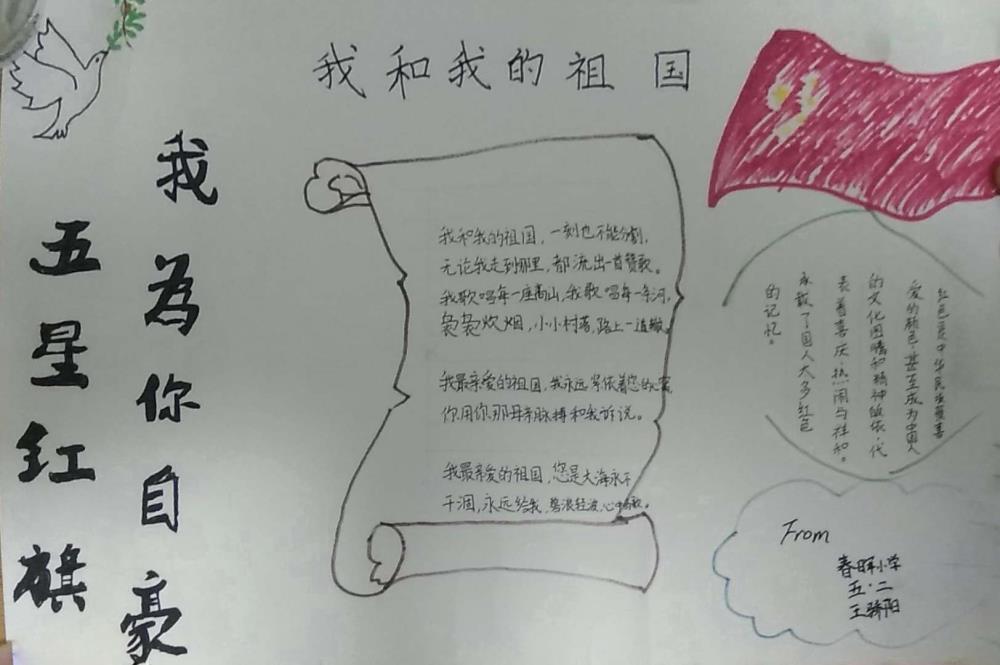 我和我的祖国
五星红旗
我為你自豪
我和我的祖国,一刻也不能分割,
无论我走到哪里,都流出一首赞歌。
我歌唱每一座高山,我歌唱每一条河,
袅袅炊烟,小小村落,路上一道辙。
我最亲爱的祖国,我永远紧依着您的心窝
你用你那母亲脉搏和我诉说。
我最亲爱的祖国,您是大海永不
干涸,永远给我,碧浪轻波,心中的歌。
红色是中华民族最喜
爱的颜色,甚至成为中国人
的文化图腾和精神皈依,代
表着喜庆、热闹与祥和。
承载了国人太多红色
的记忆。
From
春晖小学
五·二
王骄阳